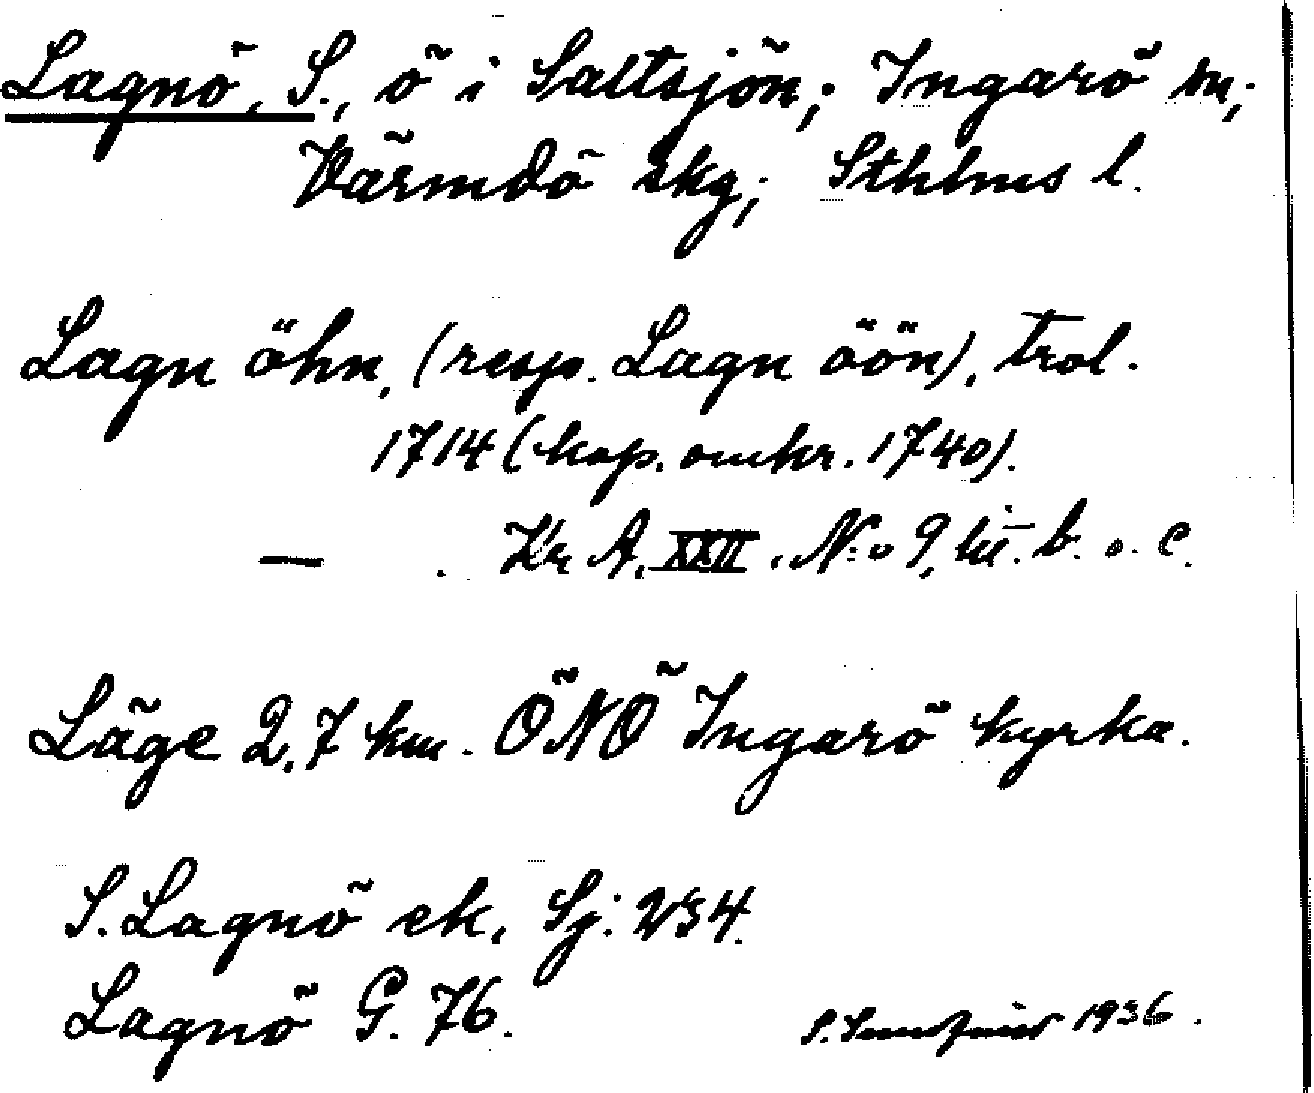 Lagnö, S., ö i Saltsjön; Ingarö sn;
Värmdö skg; Sthlms l.
Lagn öhn, (resp. Lagn öön), trol.
1714 (kop. omkr. 1740).
— . Kr. A. XXII. N:o 9, litt. b. o. c.
Läge 2,7 km. ÖNÖ Ingarö kyrka.
S. Lagnö ek. Sj: 234.
Lagnö G. 76.
S. 1936.